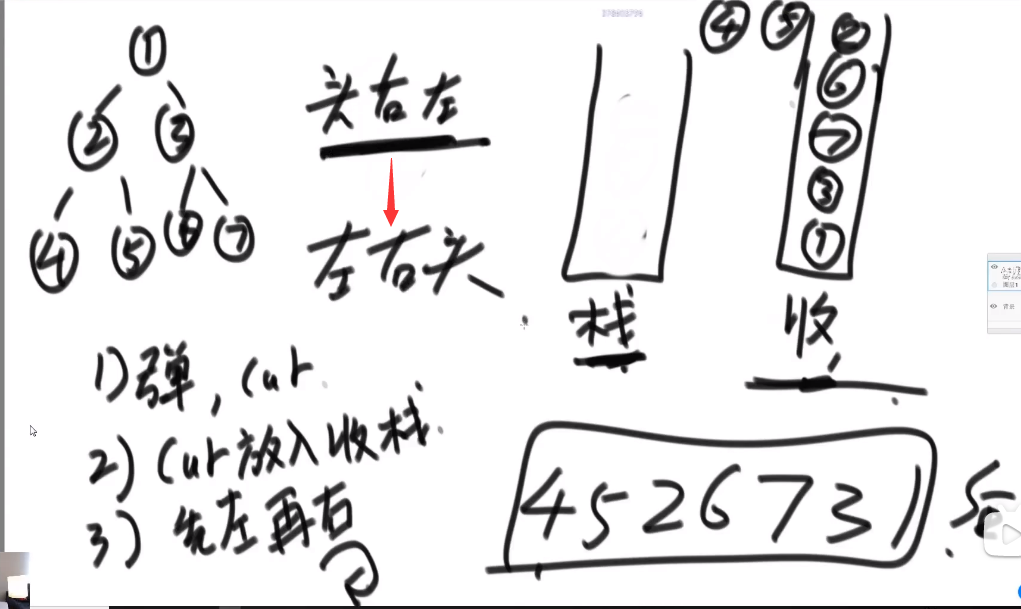 ①
② ③
④ ⑤ ⑥ ⑦
头右左
左右头
④ ⑤ ②
⑥
⑦
③
①
栈
收
1)弹, cur
2) cur放入收栈.
3) 先左再右
4 5 2 6 7 3 1 .后